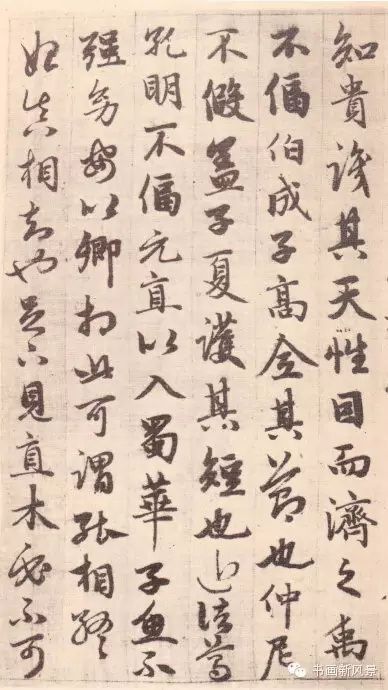 知貴識其天性因而濟之禹
不偪伯成子高全其節也仲尼
不假蓋子夏護其短也近諸葛
孔明不偪元直以入蜀華子魚不
強幼安以卿相此可謂能相終
始真相知也足下見直木必不可
书画新风景